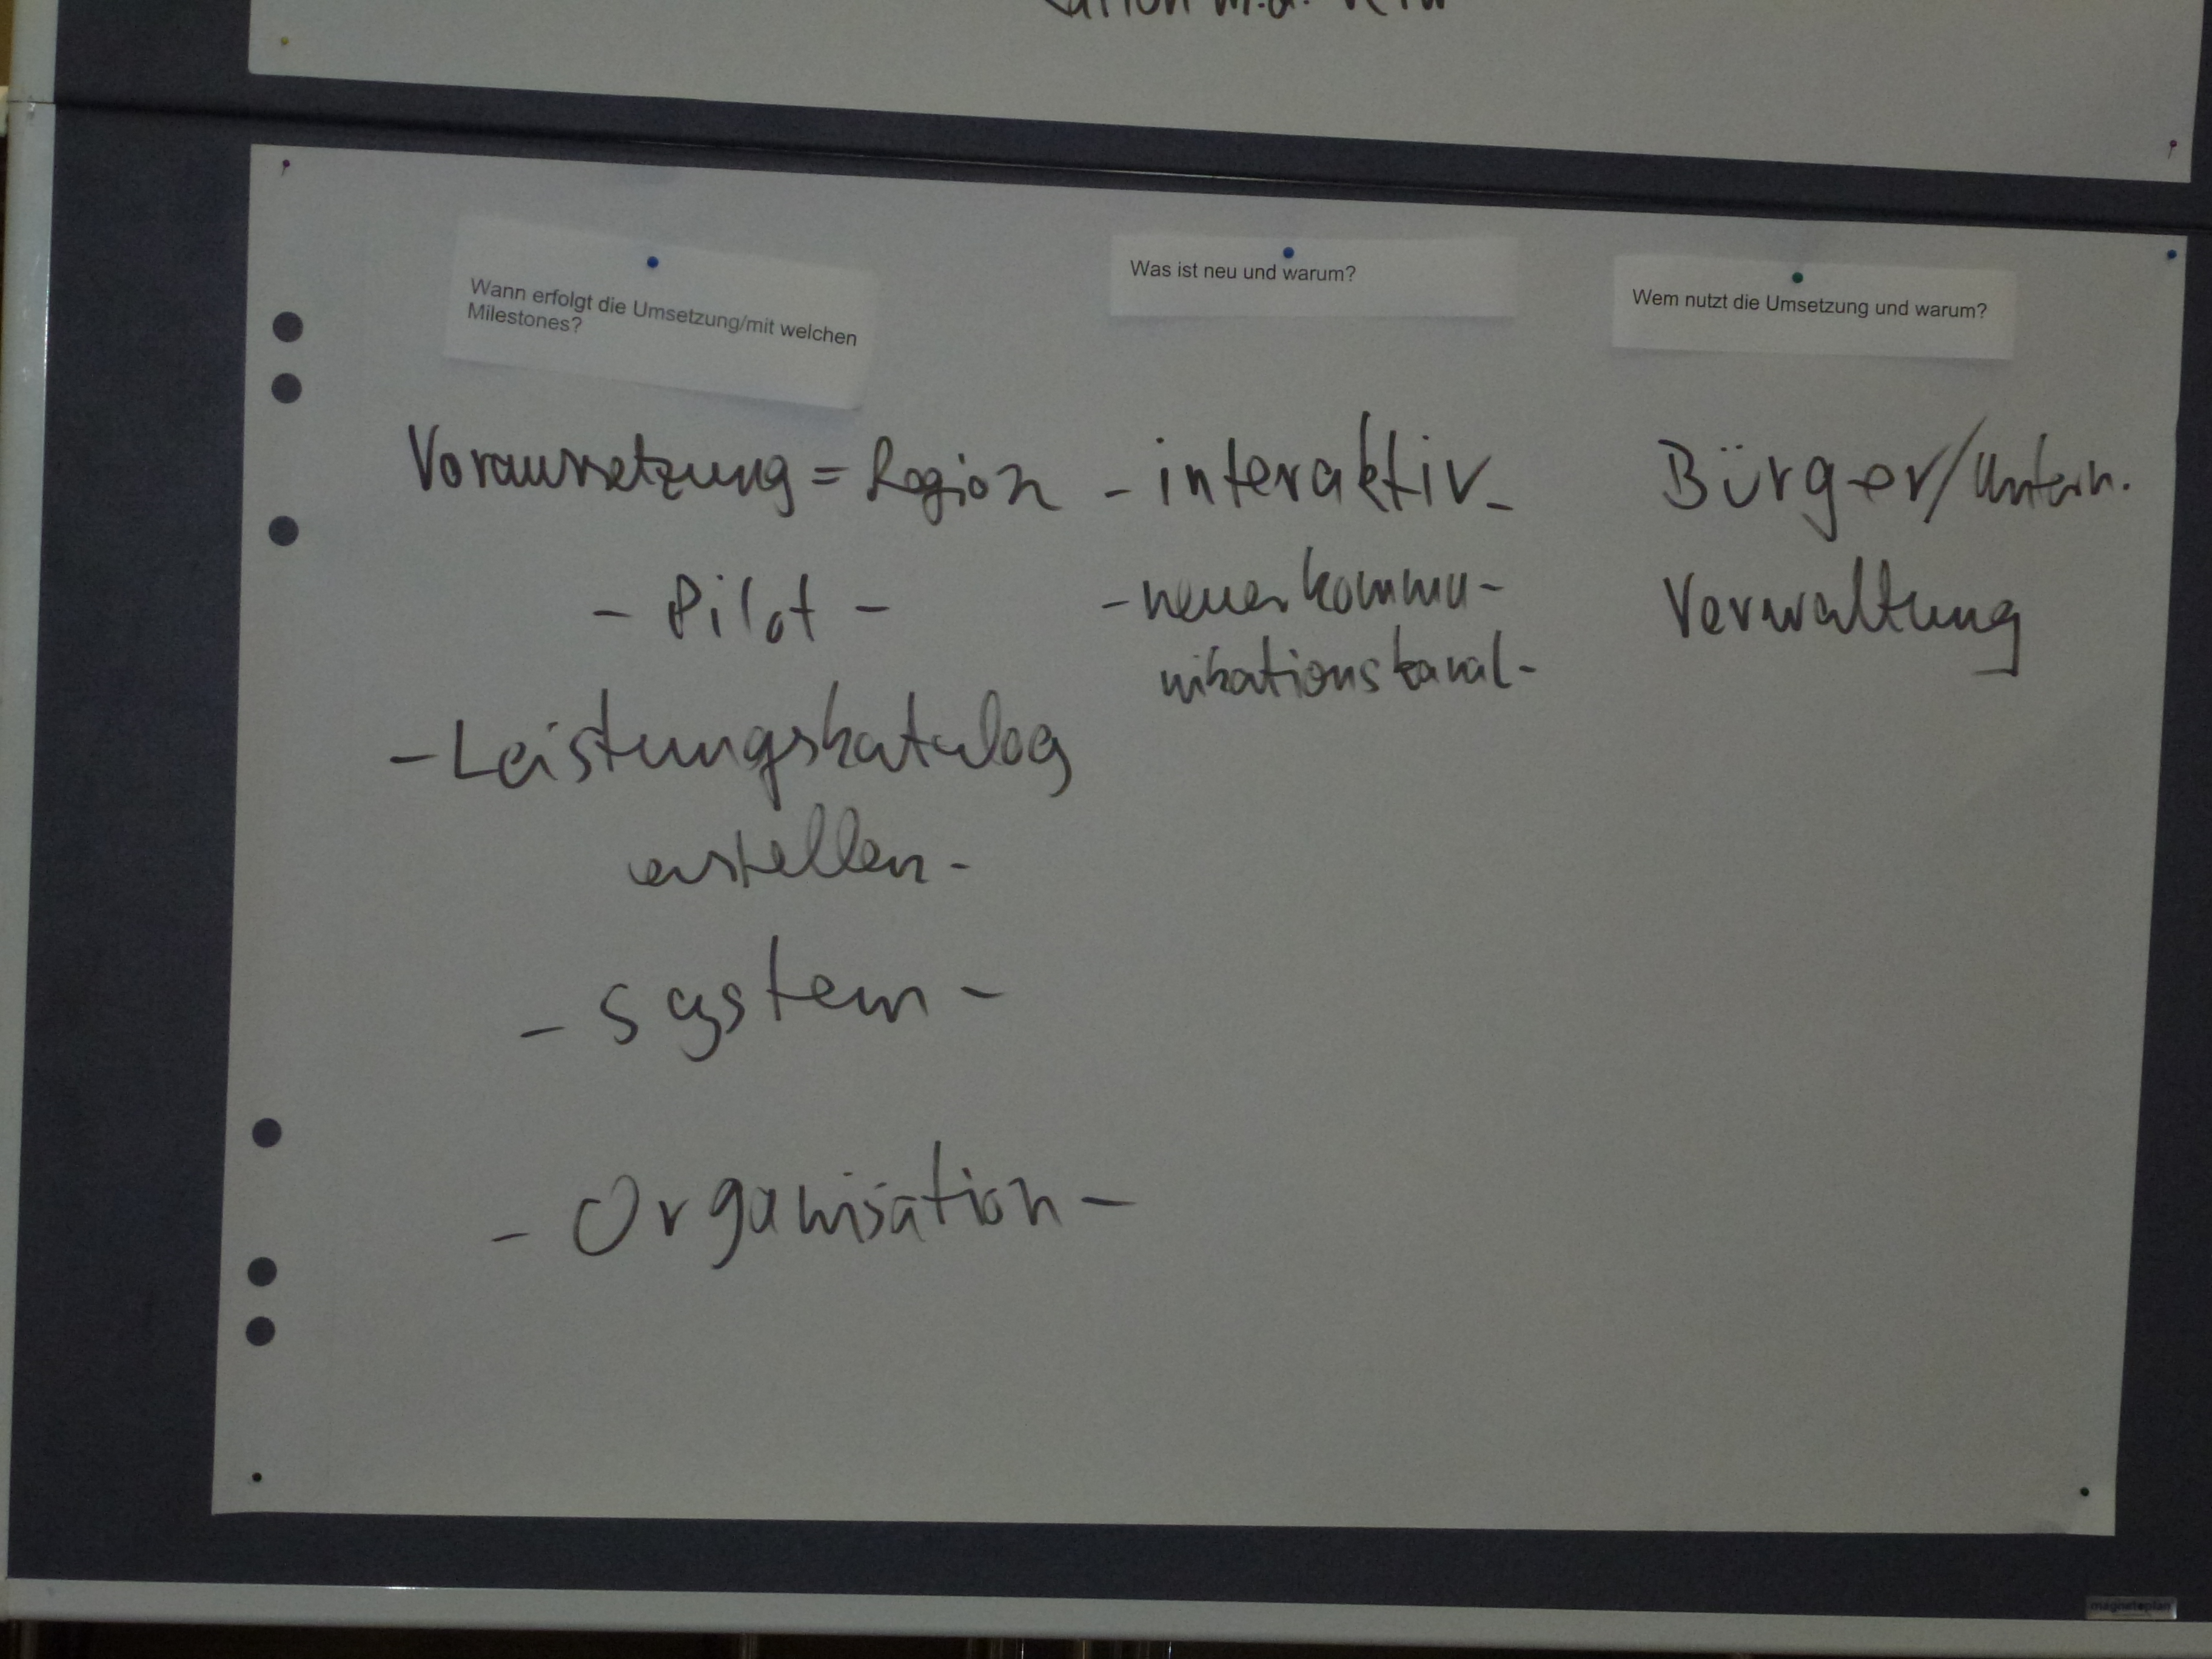 Wann erfolgt die Umsetzung/mit welchen
Milestones?
Voraussetzung = Region
- Pilot -
- Leistungskatalog
erstellen -
- System -
- Organisation -
Was ist neu und warum?
- interaktiv -
- neuer Kommu -
nikationskanal -
Wem nutzt die Umsetzung und warum?
Bürger/Untern.
Verwaltung
magnetoplan